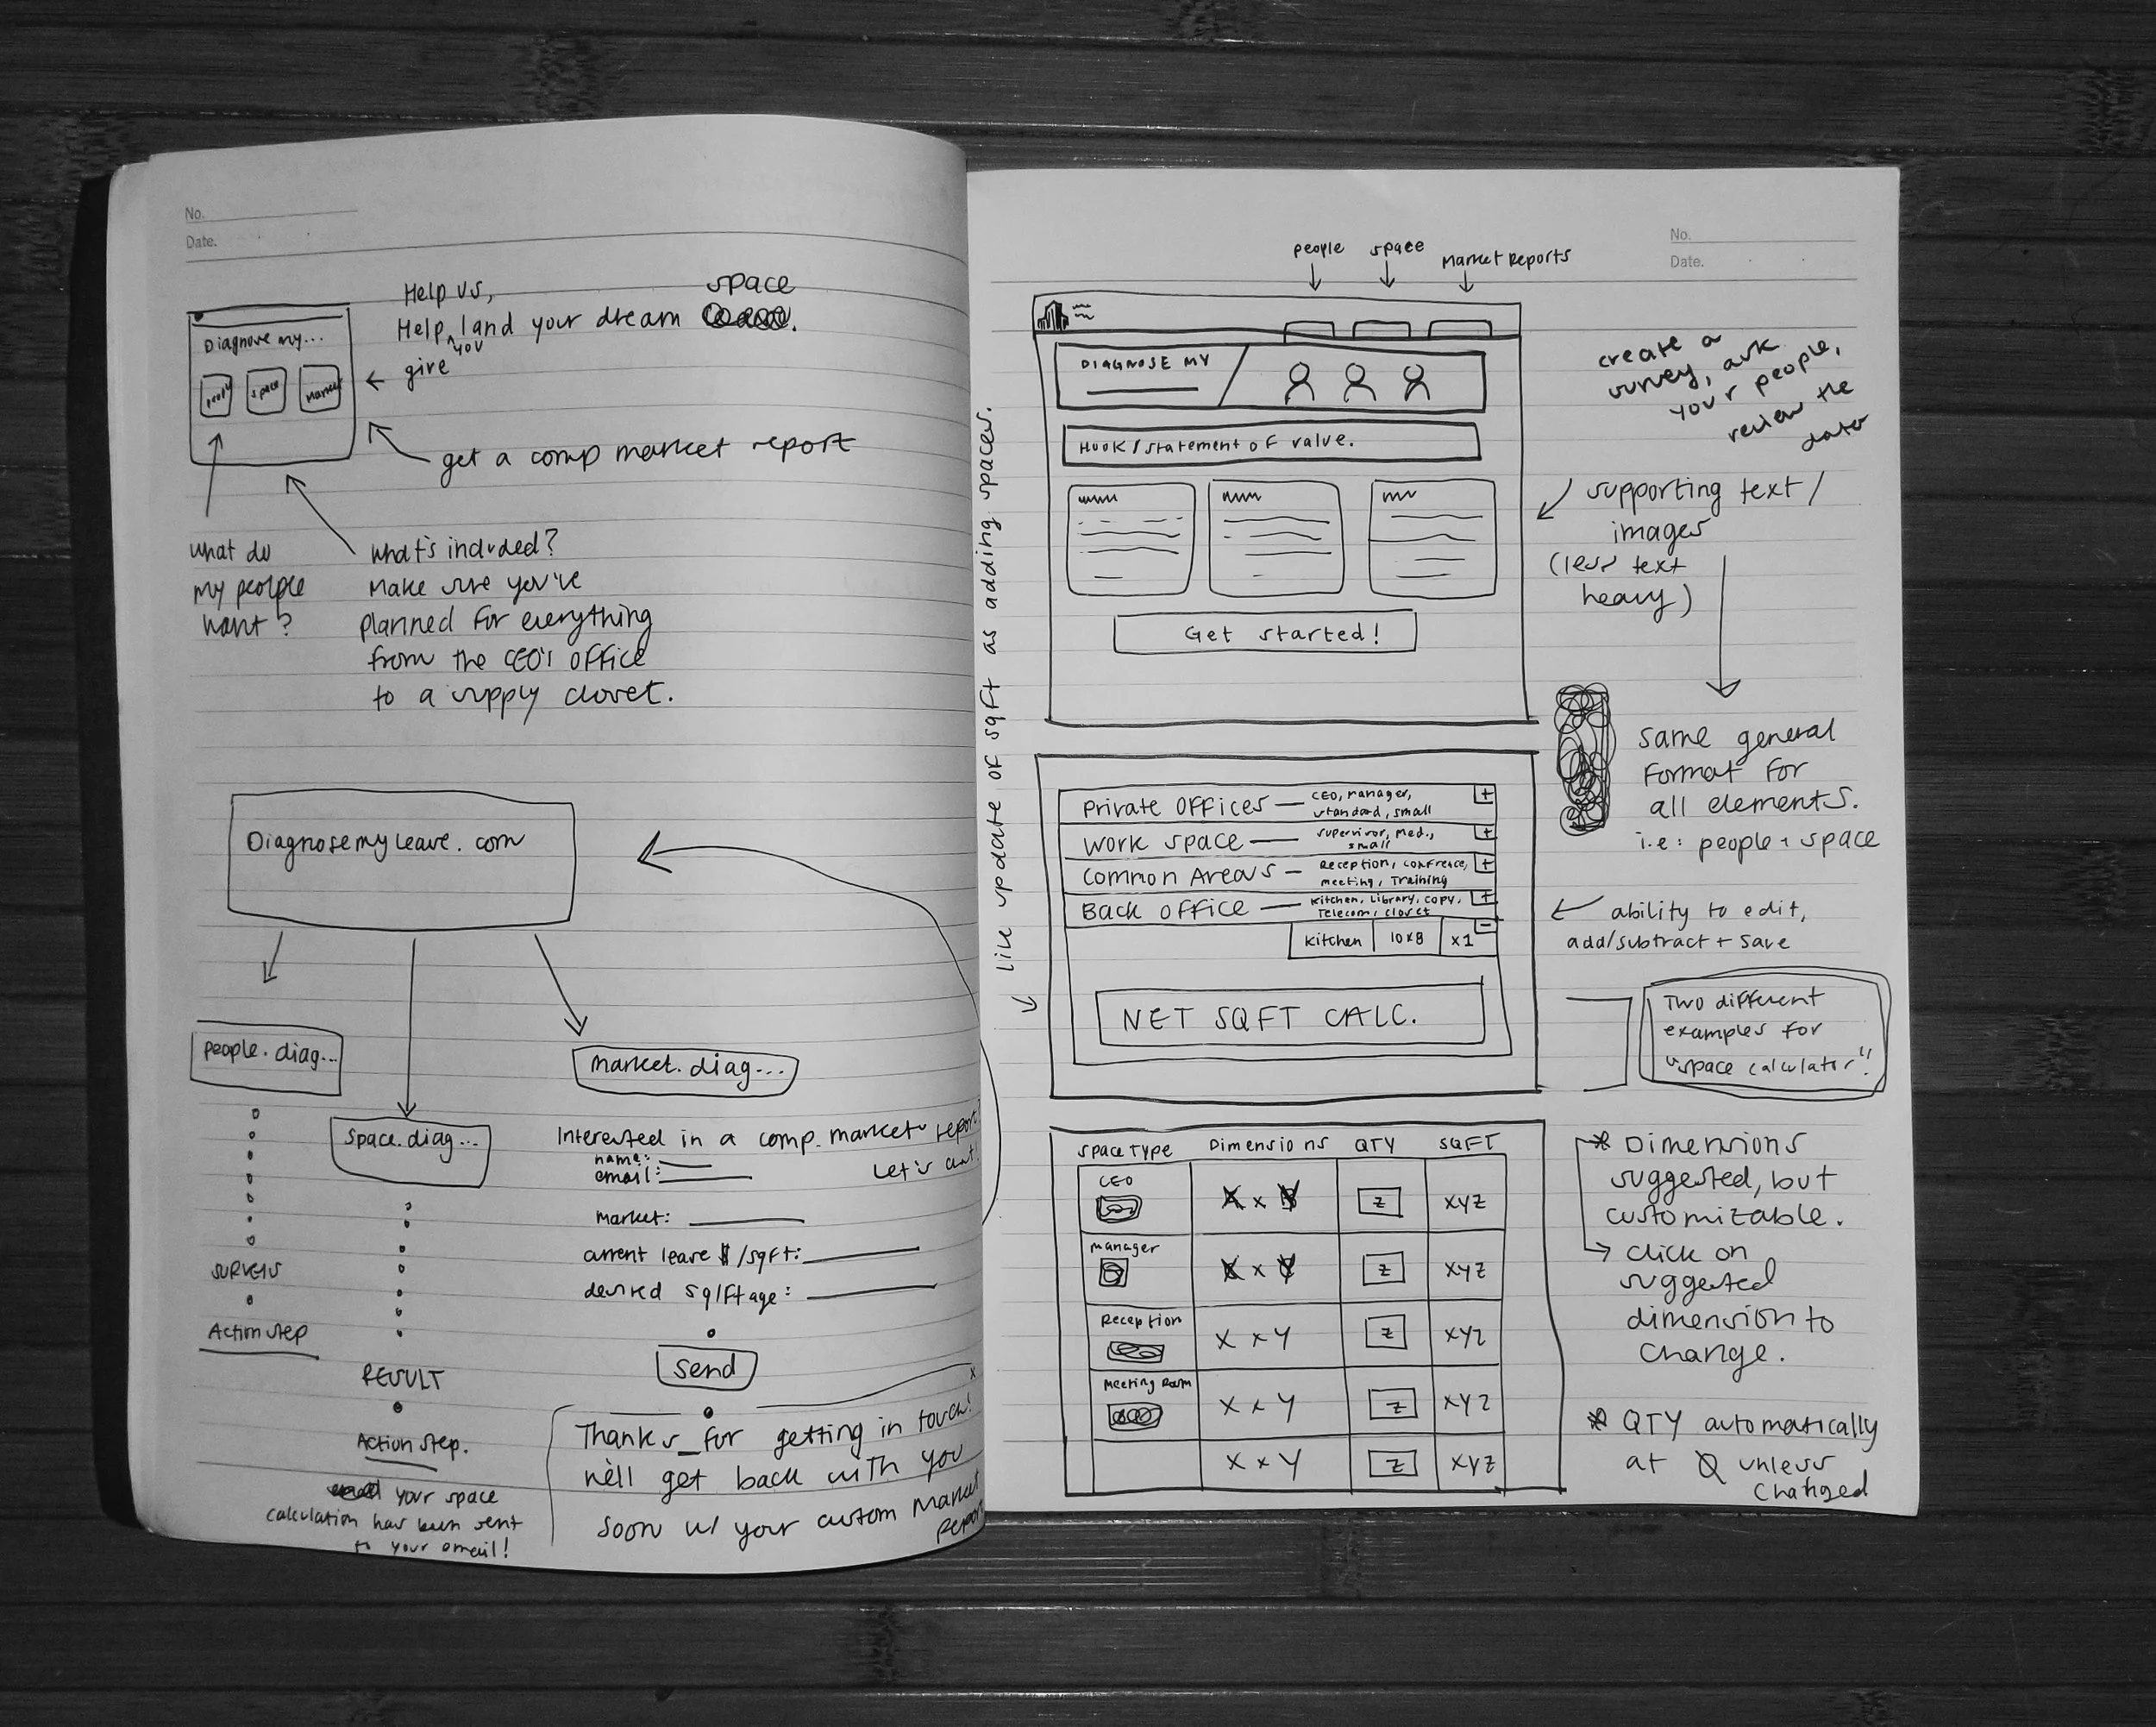 No.
Date.
Help us,
Help you land your dream space
give
Diagnose my...
people
space
market
get a comp market report
what do
my people
want?
what's included?
Make sure you've
planned for everything
from the CEO's office
to a supply closet.
Diagnosemylease.com
people.diag...
space.diag...
market.diag...
SURVEYS
Action step
RESULT
Action step.
your space
calculation has been sent
to your email!
Interested in a comp. market report?
Let's chat!
name:
email:
market:
current lease $/sqft:
desired sq/ftage:
send
x
Thanks for getting in touch!
we'll get back with you
soon w/ your custom market
report
No.
Date.
people
space
Market Reports
DIAGNOSE MY
Hook/statement of value.
Get started!
create a
survey, ask
your people,
review the
data
supporting text/
images
(less text
heavy)
same general
format for
all elements.
i.e: people + space
live update of sqft as adding spaces.
Private offices — CEO, manager,
standard, small
+
Work space — supervisor, med.,
small
+
Common Areas — Reception, confrence,
meeting, Training
+
Back office — kitchen, library, copy,
Telecom, closet
+
-
kitchen 10x8 x1
NET SQFT CALC.
ability to edit,
add/subtract + save
Two different
examples for
"space calculator"!
SPACE TYPE Dimensions QTY SQFT
CEO
X x Y Z XYZ
manager
X x Y Z XYZ
Reception
X x Y Z XYZ
Meeting Room
X x Y Z XYZ
X x Y Z XYZ
* Dimensions
suggested, but
customizable.
click on
suggested
dimension to
change.
* QTY automatically
at 0 unless
changed